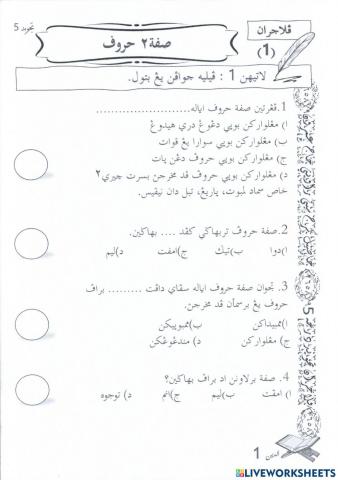 تجويد 5
ڤلاجرن
(1)
صفة٢ حروف
لاتيهن 1 : ڤيليه جواڤن يڠ بتول.
1. ڤڠرتين صفة حروف اياله......................
ا) مڠلواركن بوڽي دڠوڠ دري هيدوڠ
ب) مڠلواركن بوڽي سوارا يڠ قوات
ج) مڠلواركن بوڽي حروف دڠن ڽات
د) مڠلواركن بوڽي حروف قد مخرجڽ بسرت چيري٢
خاص سماد لمبوت، ڽاريڠ، تبل دان نيڤيس.
2. صفة حروف تربهاڬي كڤد .... بهاڬين.
ا) دوا ب) تيڬ ج) امڤت د) ليم
3. توجوان صفة حروف اياله سڤاي داڤت ......... براڤ
حروف يڠ برسمأن قد مخرجڽ.
ا) ممبيذاكن ب) ممبوڽيكن
ج) مڠلواركن د) مندڠوڠكن
4. صفة برلاونن اد براڤ بهاڬين؟
ا) امڤت ب) ليم ج) انم د) توجوه
5
الدين 1
LIVEWORKSHEETS